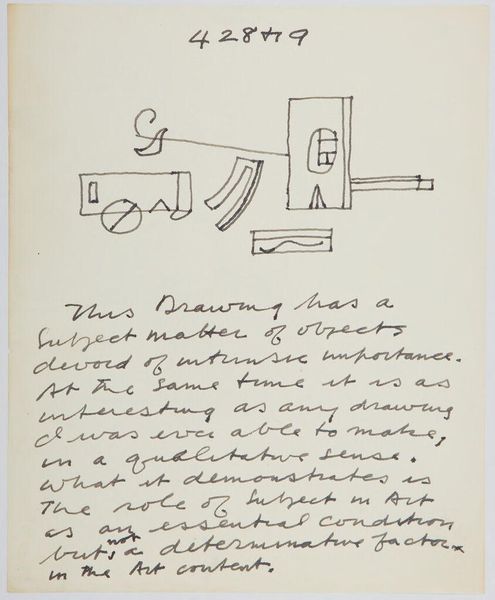 428+19
This Drawing has a
Subject matter of objects
devoid of intrinsic importance.
At the same time it is as
interesting as any drawing
I was ever able to make,
in a qualitative sense.
What it demonstrates is
The role of Subject in Art
as an essential condition
but, not a determinative factor
in the Art content.